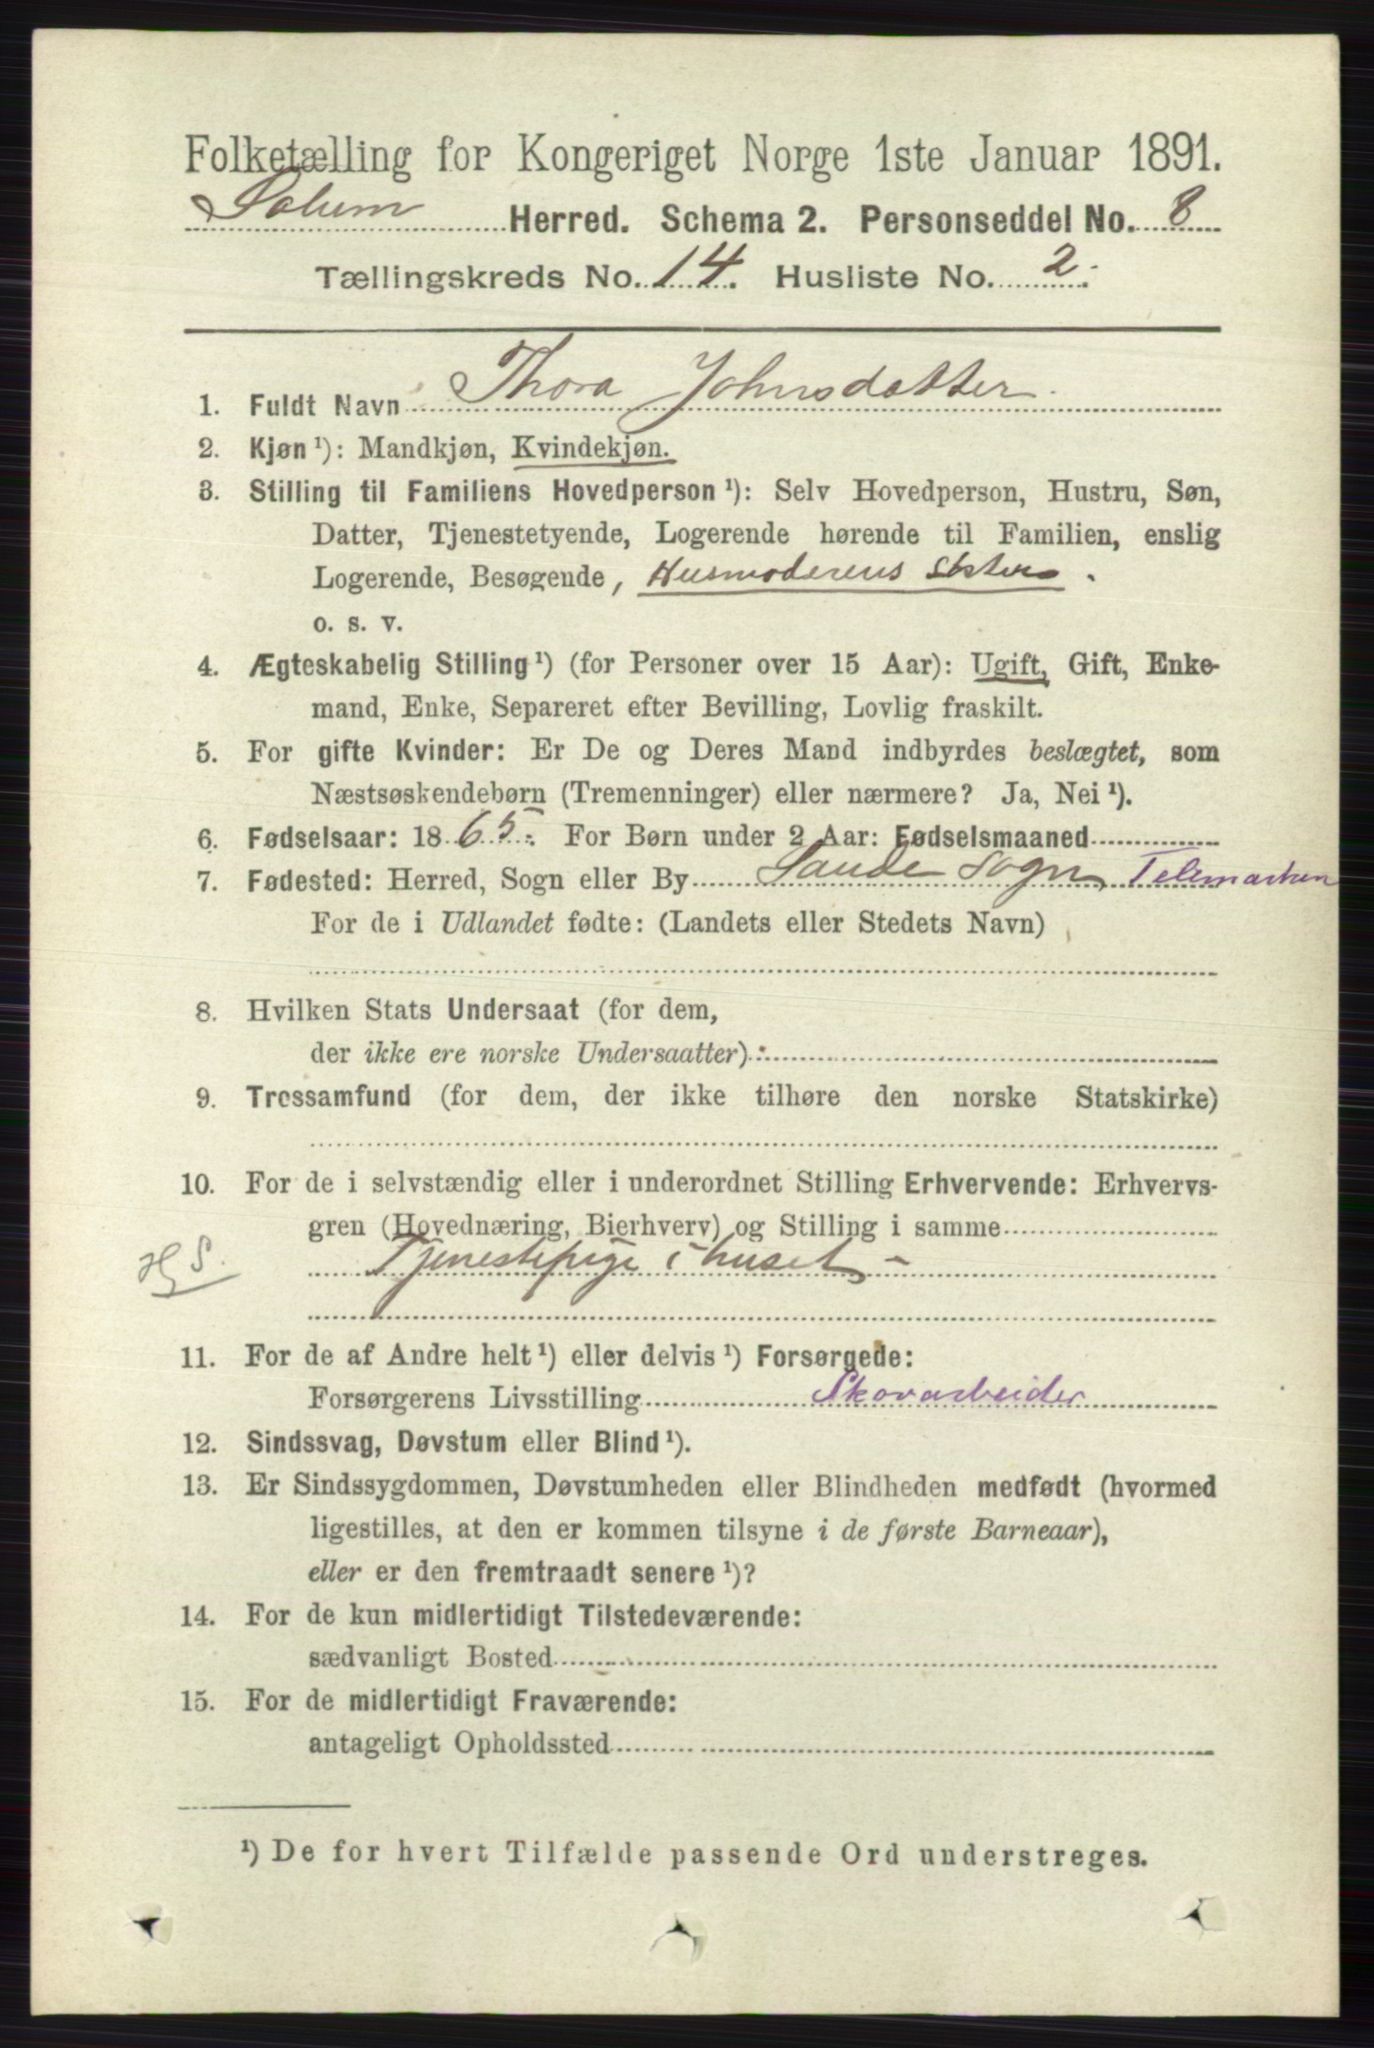 Folketælling for Kongeriget Norge 1ste Januar 1891.
Solum Herred. Schema 2. Personseddel No. 8
Tællingskreds No. 14. Husliste No. 2.
1. Fuldt Navn Thora Johnsdatter.
2. Kjøn ¹): Mandkjøn, Kvindekjøn.
3. Stilling til Familiens Hovedperson ¹): Selv Hovedperson, Hustru, Søn,
Datter, Tjenestetyende, Logerende hørende til Familien, enslig
Logerende, Besøgende, Husmoderens Søster.
o. s. v.
4. Ægteskabelig Stilling ¹) (for Personer over 15 Aar): Ugift, Gift, Enke-
mand, Enke, Separeret efter Bevilling, Lovlig fraskilt.
5. For gifte Kvinder: Er De og Deres Mand indbyrdes beslægtet, som
Næstsøskendebørn (Tremenninger) eller nærmere? Ja, Nei ¹).
6. Fødselsaar: 1865. For Børn under 2 Aar: Fødselsmaaned
7. Fødested: Herred, Sogn eller By Saude Sogn, Telemarken
For de i Udlandet fødte: (Landets eller Stedets Navn)
8. Hvilken Stats Undersaat (for dem,
der ikke ere norske Undersaatter):
9. Trossamfund (for dem, der ikke tilhøre den norske Statskirke)
10. For de i selvstændig eller i underordnet Stilling Erhvervende: Erhvervs-
gren (Hovednæring, Bierhverv) og Stilling i samme
HS. Tjenestepige i huset -
11. For de af Andre helt ¹) eller delvis ¹) Forsørgede:
Forsørgerens Livsstilling Skovarbeider
12. Sindssvag, Døvstum eller Blind ¹).
13. Er Sindssygdommen, Døvstumheden eller Blindheden medfødt (hvormed
ligestilles, at den er kommen tilsyne i de første Barneaar),
eller er den fremtraadt senere ¹)?
14. For de kun midlertidigt Tilstedeværende:
sædvanligt Bosted
15. For de midlertidigt Fraværende:
antageligt Opholdssted
¹) De for hvert Tilfælde passende Ord understreges.